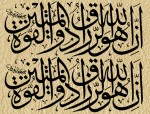 إن الله هو الرزاق ذو القوة المتين
إن الله هو الرزاق ذو القوة المتين